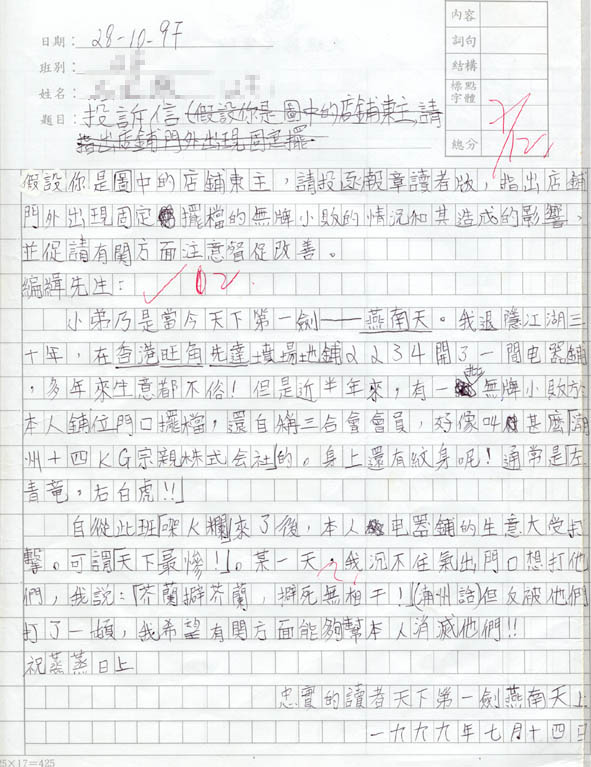 日期：28-10-97
內容
詞句
班別：
結構
姓名：
標點
字體
題目：投訴信(假設你是圖中的店鋪東主,請
總分 7/12
指出店鋪門外出現固定擺
假設你是圖中的店鋪東主，請投函報章讀者版，指出店鋪
門外出現固定擺檔的無牌小販的情況和其造成的影響，
並促請有関方面注意督促改善。
編緝先生：
小弟乃是當今天下第一劍——燕南天。我退隱江湖三
十年，在香港旺角先達墳場地鋪２２３４開了一間电器鋪
，多年來生意都不俗！但是近半年來，有一些無牌小販於
本人鋪位門口擺檔，還自稱三合會會員，好像叫甚麼「潮
州十四ＫＧ宗親株式会社」的。身上還有紋身呢！通常是「左
青竜，右白虎！！」
自從此班「㗎乂爛」來了後，本人电器鋪的生意大受打
擊。可謂「天下最慘！」。某一天，我沉不住氣出門口想打他
們，我説：「芥蘭擗芥蘭，擗死無相干！」(潮州話)但反被他們
打了一頓，我希望有関方面能夠幫本人消滅他們！！
祝蒸蒸日上
忠實的讀者天下第一劍燕南天上
一九九九年七月十四日
25×17=425